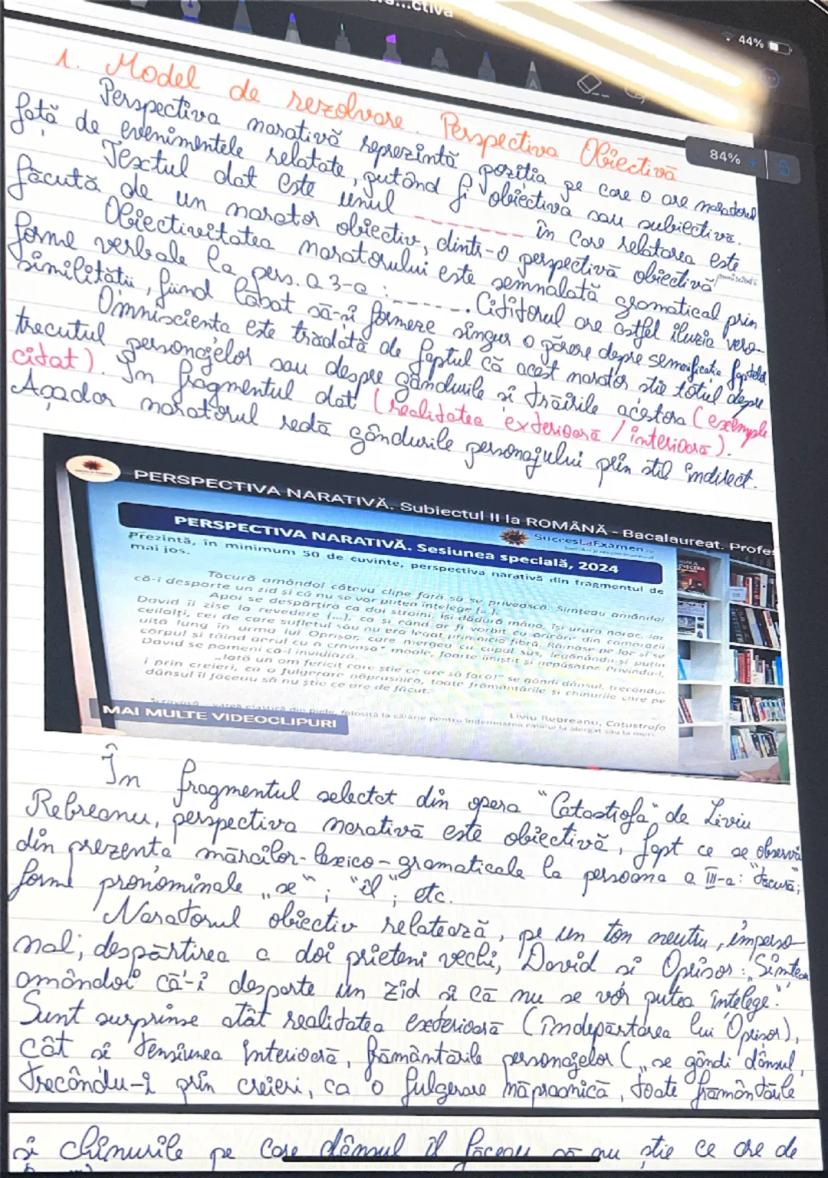 44%
84%
1. Model de rezolvare. Perspectiva Obiectivă
Perspectiva narativă reprezintă poziția pe care o are naratorul
față de evenimentele relatate, putând fi obiectivă sau subiectivă.
Textul dat este unul ------- în care relatarea este
făcută de un narator obiectiv, dintr-o perspectivă obiectivă
Obiectivitatea naratorului este semnalată gramatical prin
forme verbale la pers. a 3-a : ------. Cititorul are astfel iluzia vero-
similității, fiind lăsat să-și formeze singur o părere depre semnificația faptelor
Omnisciența este trădată de faptul că acest narator știe totul depre
trecutul personajelor sau despre gândurile și trăirile acestora (exemple
citat). În fragmentul dat (realitatea exterioară / interioară).
Așadar naratorul redă gândurile personajului prin stil indirect.
PERSPECTIVA NARATIVĂ. Subiectul II la ROMÂNĂ - Bacalaureat. Profes
SuccesLaExamen
PERSPECTIVA NARATIVĂ. Sesiunea specială, 2024
Prezintă, în minimum 50 de cuvinte, perspectiva narativă din fragmentul de
mai jos.
Tăcură amândoi câteva clipe fără să se privească. Simțeau amândoi
că-i desparte un zid și că nu se vor putea înțelege (...).
Apoi se despărțiră ca doi străini. Își dădură mâna, își urară noroc, iar
David îi zise la revedere (...), ca și când ar fi vorbit cu oricare din camarazii
ceilalți, cei de care sufletul său nu era legat prin nicio fibră. Rămase pe loc și se
uită lung în urma lui Oprișor, care mergea cu capul sus, legănându-și puțin
corpul și tăind aerul cu o cravașă moale, foarte liniștit și nepăsător. Privindu-l,
David se pomeni că-l invidiază.
„Iată un om fericit care știe ce are să facă!” se gândi dânsul, trecându-
i prin creieri, ca o fulgerare năprasnică, toate frământările și chinurile care pe
dânsul îl făceau să nu știe ce are de făcut.
Liviu Rebreanu, Catastrofa
MAI MULTE VIDEOCLIPURI
În fragmentul selectat din opera "Catastrofa" de Liviu
Rebreanu, perspectiva narativă este obiectivă, fapt ce se observă
din prezenta mărcilor-lexico-gramaticale la persoana a III-a: "tăcură";
forme pronominale „se"; "îl"; etc.
Naratorul obiectiv relatează, pe un ton neutru, imperso-
nal; despărtirea a doi prieteni vechi, David si Oprisor: „Simțeau
amândoi că-i desparte un zid și că nu se vor putea întelege."
Sunt surprinse atât realitatea exterioară (îndepărtarea lui Oprisor),
cât si tensiunea interioară, frământările personajelor („se gândi dânsul,
trecându-i prin creieri, ca o fulgerare năpraznică, toate frământările
si chinurile pe care dânsul îl făceau să nu știe ce are de